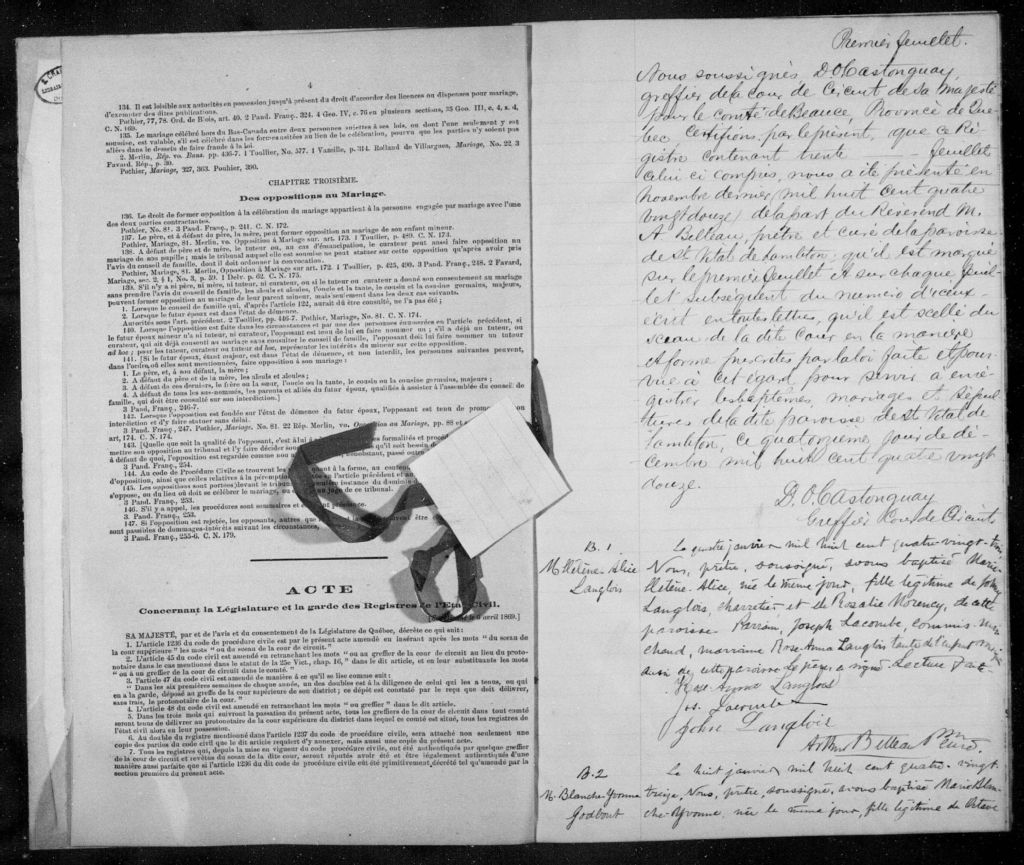 4
134. Il est loisible aux autorités en possession jusqu'à présent du droit d'accorder des licences ou dispenses pour mariage,
d'exempter des dites publications.
Pothier, 77, 78. Ord. de Blois, art. 40. 2 Pand. Franç. 324. 4 Geo. IV, c. 76 en plusieurs sections, 35 Geo. III, c. 4, s. 4,
C. N. 169.
135. Le mariage célébré hors du Bas-Canada entre deux personnes sujettes à ses lois, ou dont l'une seulement y est
soumise, est valable, s'il est célébré dans les formes usitées au lieu de la célébration, pourvu que les parties n'y soient pas
allées dans le dessein de faire fraude à la loi.
2. Merlin, Rép. vo. Bans. pp. 436-7. 1 Toullier, No. 577. 1 Vamille, p. 314. Rolland de Villargues, Mariage, No. 22. 3
Favard. Rép., p. 30.
Pothier, Mariage, 327, 363. Pothier, 390.
CHAPITRE TROISIÈME.
Des oppositions au Mariage.
136. Le droit de former opposition à la célébration du mariage appartient à la personne engagée par mariage avec l'une
des deux parties contractantes.
Pothier, No. 81. 3 Pand. Franç., p. 241. C. N. 172.
137. Le père, et à défaut du père, la mère, peut former opposition au mariage de son enfant mineur.
Pothier, Mariage, 81. Merlin, vo. Opposition à Mariage sur. art. 173. 1 Toullier, p. 489. C. N. 174.
138. A défaut de père et de mère, le tuteur ou, au cas d'émancipation, le curateur peut aussi faire opposition au
mariage de son pupille; mais le tribunal auquel elle est soumise ne peut statuer sur cette opposition qu'après avoir pris
l'avis du conseil de famille, dont il doit ordonner la convocation.
Pothier, Mariage, 81. Merlin, Opposition à Mariage sur art. 172. 1 Toullier, p. 425, 490. 3 Pand. Franç., 248. 2 Favard,
Mariage, sec. 2, § 1, No. 3, p. 59. 1 Delv. p. 62. C. N. 175.
139. S'il n'y a ni père, ni mère, ni tuteur, ni curateur, ou si le tuteur ou curateur a donné son consentement au mariage
sans prendre l'avis du conseil de famille, les aïeuls et aïeules, l'oncle et la tante, le cousin et la cousine germains, majeurs,
peuvent former opposition au mariage de leur parent mineur, mais seulement dans les deux cas suivants.
1. Lorsque le conseil de famille qui, d'après l'article 122, aurait dû être consulté, ne l'a pas été;
2. Lorsque le futur époux est dans l'état de démence.
Autorités sous l'art. précédent. 2 Toullier, pp. 446-7. Pothier, Mariage, No. 81. C. N. 174.
140. Lorsque l'opposition est faite dans les circonstances et par une des personnes énumérées en l'article précédent, si
le futur époux mineur n'a ni tuteur, ni curateur, l'opposant est tenu de lui en faire nommer un; s'il a déjà un tuteur, ou
curateur, qui ait déjà consenti au mariage sans consulter le conseil de famille, l'opposant doit lui faire nommer un tuteur
ad hoc; pour les tuteur, curateur ou tuteur ad hoc, représenter les intérêts du mineur sur cette opposition.
141. [Si le futur époux, étant majeur, est dans l'état de démence, et non interdit, les personnes suivantes peuvent,
dans l'ordre où elles sont mentionnées, faire opposition à son mariage:
1. Le père, et, à son défaut, la mère;
2. A défaut du père et de la mère, les aïeuls et aïeules;
3. A défaut de ces derniers, le frère ou la sœur, l'oncle ou la tante, le cousin ou la cousine germains, majeurs;
4. A défaut de tous les sus-nommés, les parents et alliés du futur époux, qualifiés à assister à l'assemblée du conseil de
famille, qui doit être consulté sur son interdiction.]
3 Pand. Franç., 246-7.
142. Lorsque l'opposition est fondée sur l'état de démence du futur époux, l'opposant est tenu de promo
interdiction et d'y faire statuer sans délai.
3 Pand. Franç., 247. Pothier, Mariage, No. 81. 22 Rép. Merlin, vo. Opposition au Mariage, pp. 88 et
art. 174. C. N. 174.
143. [Quelle que soit la qualité de l'opposant, c'est à lui à formalités et procé
mettre son opposition au tribunal et l'y faire décider sous qu'il soit besoin
à défaut de quoi, l'opposition est regardée comme non nonobstant, passé outre
3 Pand. Franç., 254.
144. Au code de Procédure Civile se trouvent les quant à la forme, au conten
d'opposition, ainsi que celles relatives à la péremption l'article précédent et au
145. Les oppositions sont portées devant le tribunal première instance du domicil
s'oppose, ou du lieu où doit se célébrer le mariage, ou juge de ce tribunal.
3 Pand. Franç., 253.
146. S'il y a appel, les procédures sont sommaires et ont présence.
3 Pand. Franç., 253.
147. Si l'opposition est rejetée, les opposants, autres que être
sont passibles de dommages-intérêts suivant les circonstances.
3 Pand. Franç., 255-6. C. N. 179.
ACTE
Concernant la Législature et la garde des Registres de l'Etat Civil.
6 avril 1869.]
SA MAJESTÉ, par et de l'avis et du consentement de la Législature de Québec, décrète ce qui suit:
1. L'article 1236 du code de procédure civile est par le présent acte amendé en insérant après les mots "du sceau de
la cour supérieure" les mots "ou du sceau de la cour de circuit."
2. L'article 45 du code civil est amendé en retranchant les mots "ou au greffier de la cour de circuit au lieu du proto-
notaire dans le cas mentionné dans le statut de la 25e Vict., chap. 16," dans le dit article, et en leur substituant les mots
"ou à un greffier de la cour de circuit dans le comté."
3. l'article 47 du code civil est amendé de manière à ce qu'il se lise comme suit:
"Dans les six premières semaines de chaque année, un des doubles est à la diligence de celui qui les a tenus, ou qui
en a la garde, déposé au greffe de la cour supérieure de son district; ce dépôt est constaté par le reçu que doit délivrer,
sans frais, le protonotaire de la cour."
4. L'article 48 du code civil est amendé en retranchant les mots "ou greffier" dans le dit article.
5. Dans les trois mois qui suivront la passation du présent acte, tous les greffiers de la cour de circuit dans tout comté
seront tenus de délivrer au protonotaire de la cour supérieure du district dans lequel ce comté est situé, tous les registres de
l'état civil alors en leur possession.
6. Au double du registre mentionné dans l'article 1237 du code de procédure civile, sera attaché non seulement une
copie des parties du code civil que le dit article requiert d'y annexer, mais aussi une copie du présent acte.
7. Tous les registres qui, depuis la mise en vigueur du code procédure civile, ont été authentiqués par quelque greffier
de la cour de circuit et revêtus du sceau de la dite cour, seront réputés avoir été et être légalement authentiqués d'une
manière aussi parfaite que si l'article 1236 du dit code de procédure civile eût été primitivement décrété tel qu'amendé par la
section première du présent acte.
Premier feuillet.
Nous soussignés, D. O. Castonguay,
greffier de la cour de Circuit de Sa Majesté
pour le Comté de Beauce, Province de Qué
bec Certifions, par le présent, que ce Ré
gistre contenant trente feuillets
celui ci compris, nous a été présenté en
Novembre dernier, mil huit cent quatre
vingt douze, de la part du Révérend M.
A Belleau, prêtre et curé de la paroisse
de St Vital de Lambton; qu'il est marqué
sur le premier feuillet et sur chaque feuil-
let subséquent du numéro d'iceux
écrit en toutes lettres, qu'il est scellé du
sceau de la dite Cour en la manière
et forme prescrites par la loi faite et pour-
vue à cet égard pour servir à enre-
gistrer les baptêmes mariages et sépul-
tures de la dite paroisse de St Vital de
Lambton, ce quatorzième jour de dé-
cembre mil huit cent quatre vingt
douze.
D. O. Castonguay
Greffier Cour de Circuit
B. 1
M. Hélène-Alice
Langlois
Le quatre janvier mil huit cent quatre-vingt-trei
Nous, prêtre, soussigné, avons baptisé Marie-
Hélène-Alice, née le même jour, fille légitime de John
Langlois, charretier et de Rozalie Morency, de cette
paroisse. Parrain, Joseph Lacombe, commis mar
chand, marraine Rose-Anna Langlois tante de l'enfant
aussi de cette paroisse. Le père a signé. Lecture faite
Rose-Anna Langlois
Jos. Lacombe
John Langlois
Arthur Belleau Ptre Curé.
B. 2
M. Blanche-Yvonne
Godbout
Le huit janvier mil huit cent quatre-vingt
treize, Nous, prêtre, soussigné, avons baptisé Marie Blan-
che-Yvonne, née le même jour, fille légitime de Octave